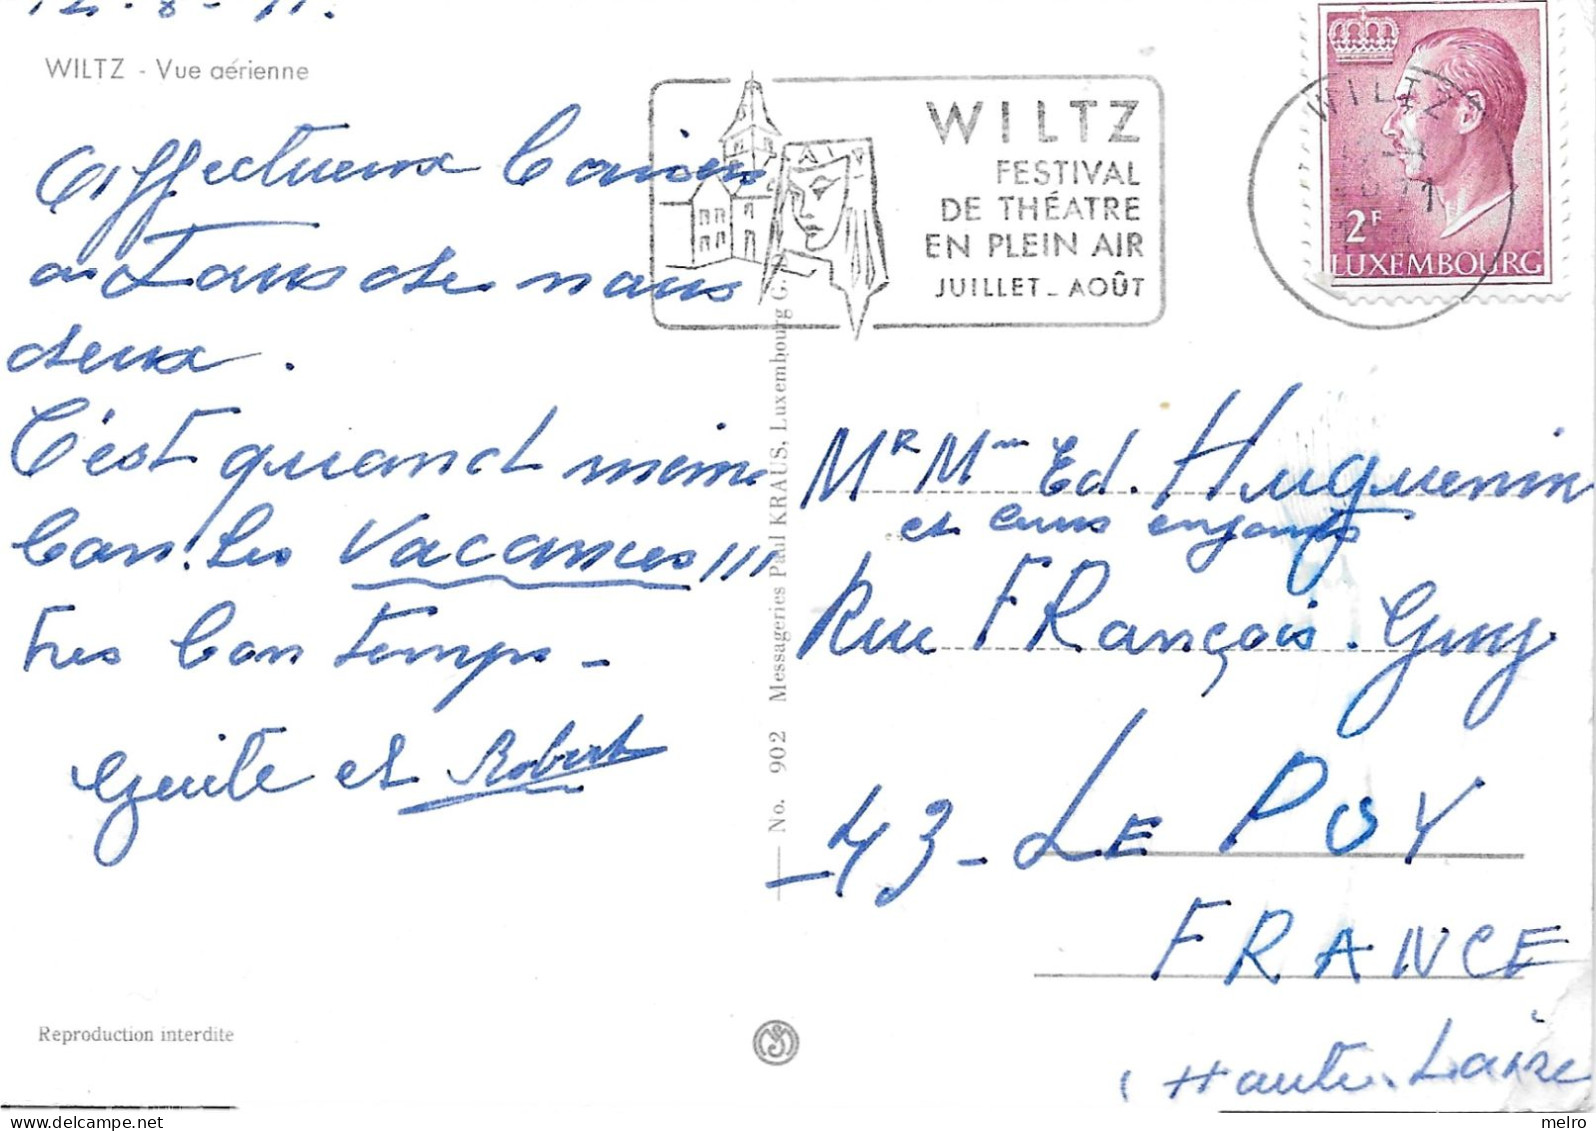 12-8-71.
WILTZ - Vue aérienne
Affectueux baisers
à Tous de nous
deux.
C'est quand même
bon! les Vacances!!!
très bon temps -
Guite et Robert
WILTZ
FESTIVAL
DE THÉATRE
EN PLEIN AIR
JUILLET - AOÛT
WILTZ
2F
LUXEMBOURG
No. 902 Messageries Paul KRAUS, Luxembourg G.
Mr Mme Ed. Huguenin
et leurs enfants
Rue FRançois. Guy
-43- LE PUY
FRANCE
(Haute. Loire
Reproduction interdite
melro